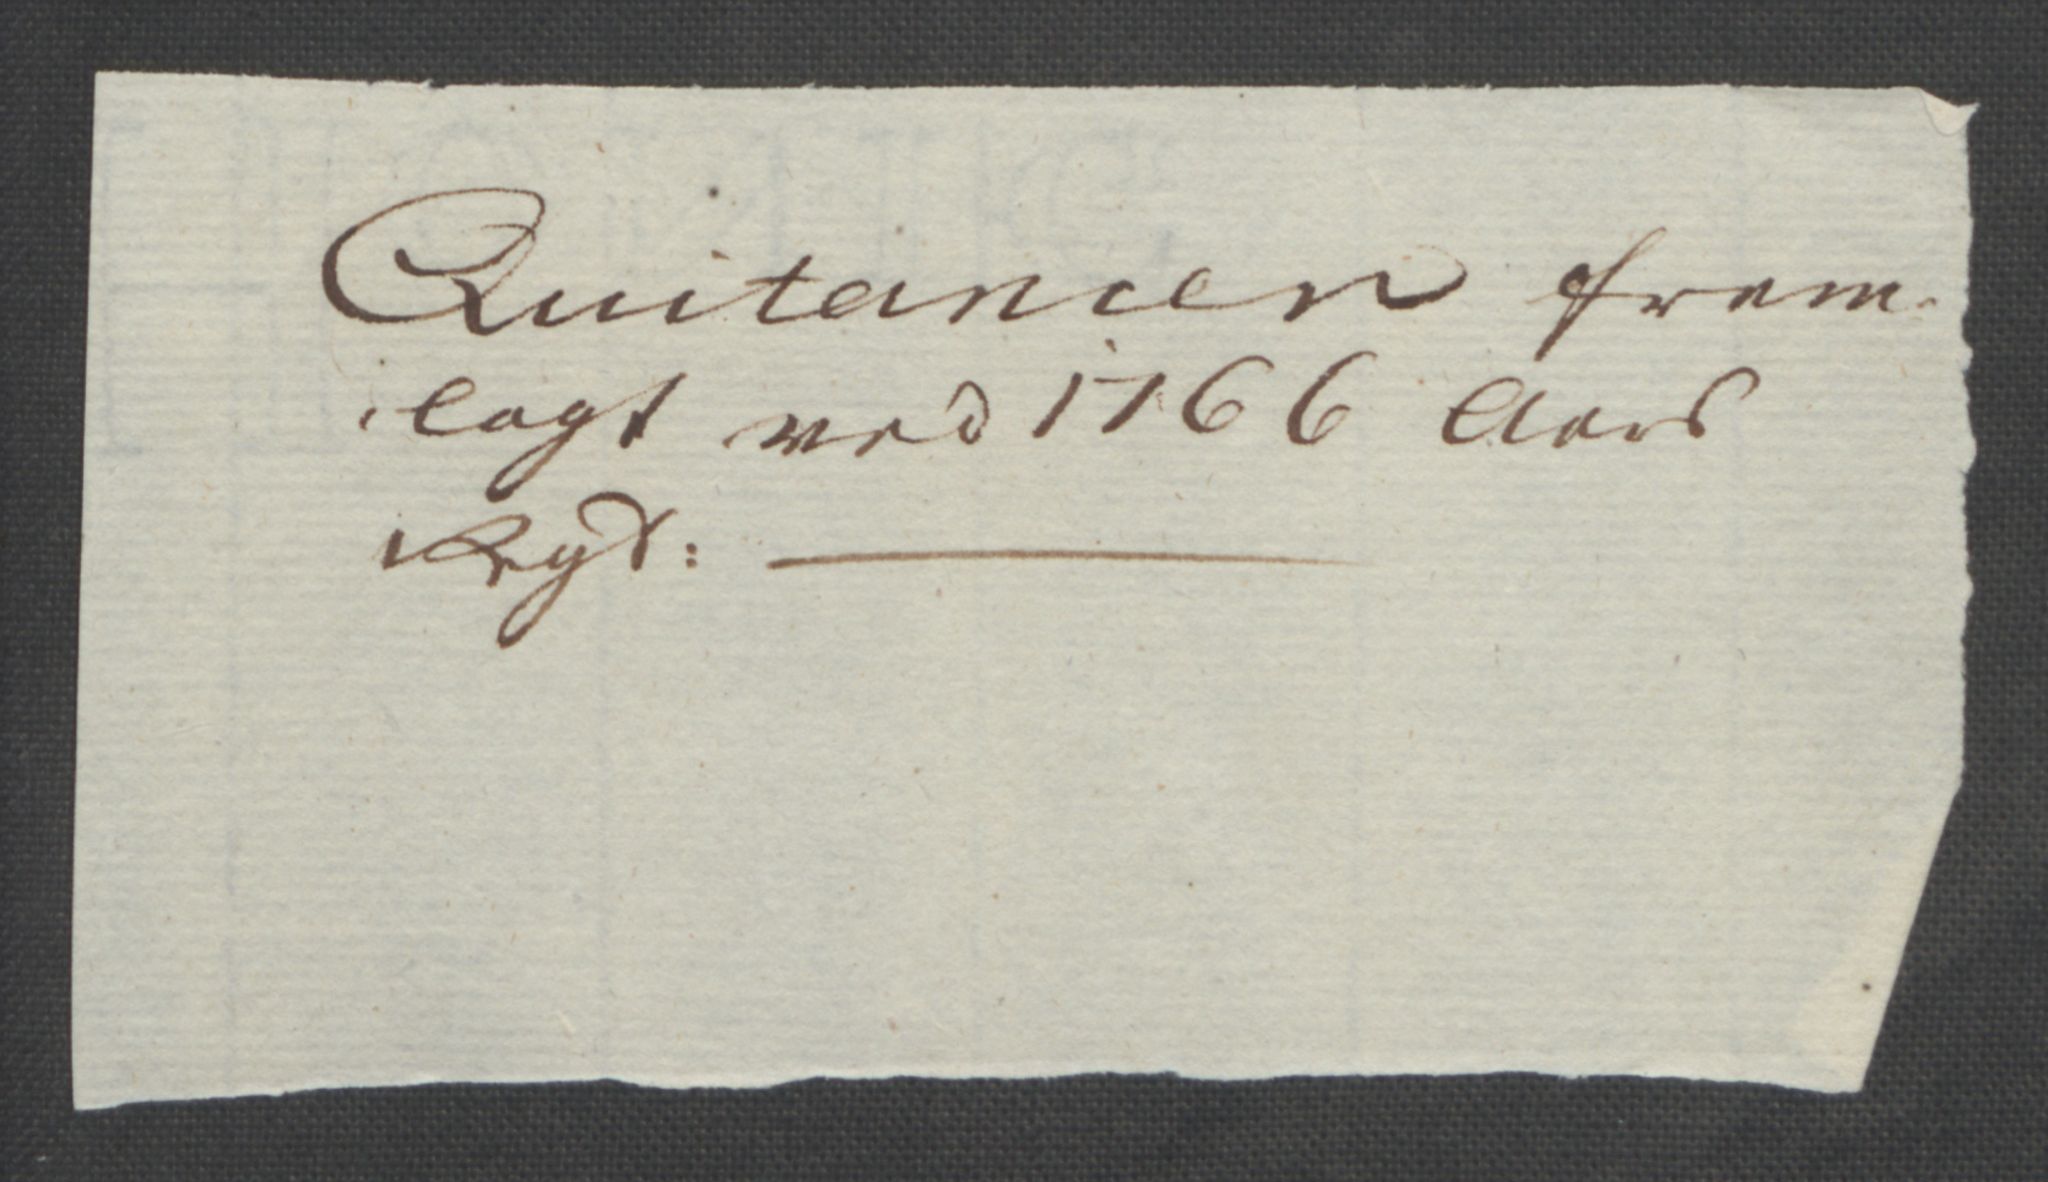 Quitancen frem-
lagt ved 1766 Aars
Regt: